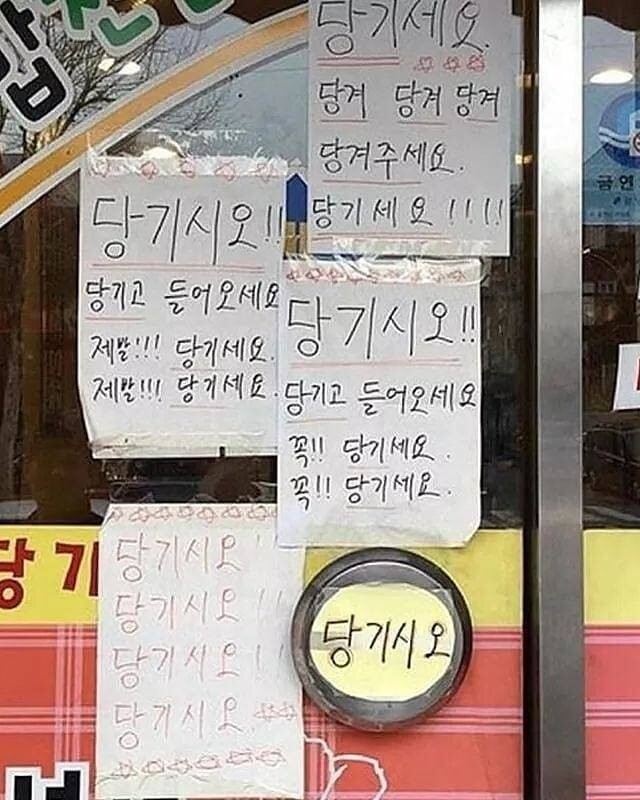 당기세요.
당겨 당겨 당겨
당겨주세요.
당기세요!!!!
당기시오!!
당기고 들어오세요
제발!!! 당기세요.
제발!!! 당기세요.
당기시오!!
당기고 들어오세요
꼭!! 당기세요.
꼭!! 당기세요.
당기시오!
당기시오!!
당기시오!!
당기시오.
당기시오
당기
금연